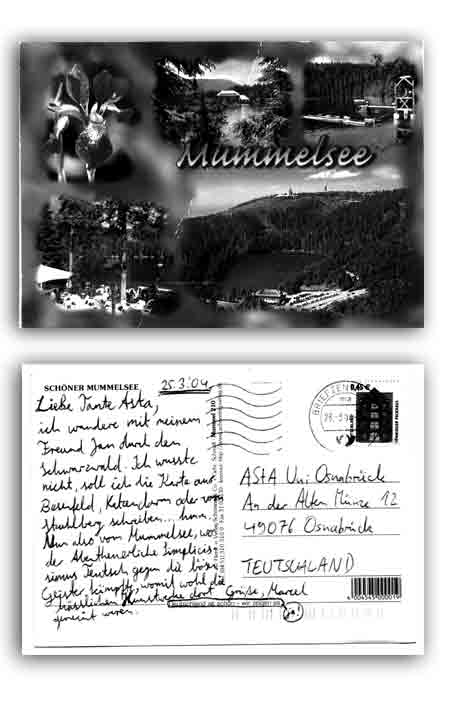 Mummelsee
SCHÖNER MUMMELSEE
25.3.04
Liebe Tante Asta,
ich wandere mit meinem
Freund Jan durch den
Schwarzwald. Ich wusste
nicht, soll ich die Karte aus
Besenfeld, oder vom
schreiben... hmm.
Nun also vom Mummelsee, wo
der Abenteuerliche Simplicis-
simus Teutsch gegen die bösen
Geister kämpft, womit wohl die
hässlichen dort
gemeint waren. Grüße, Marcel
Deutschland ist schön - wir zeigen es
ja!
BRIEFZEN
0,45 €
AStA Uni Osnabrück
An der Alten Münze 12
49076 Osnabrück
TEUTSCHLAND
4 004345 000019